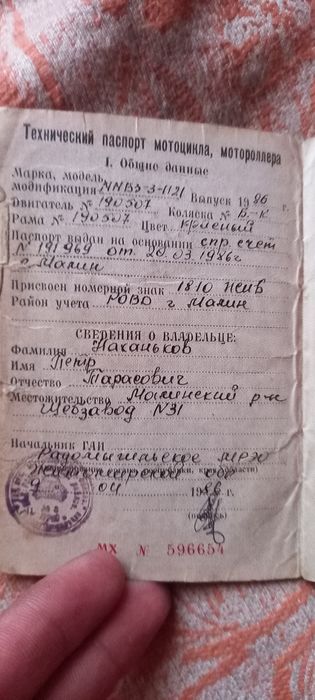 Технический паспорт мотоцикла, мотороллера
I. Общие данные
Марка, модель,
модификация ИЖ Выпуск 1986 г.
Двигатель № 190507 Коляска № Б-К
Рама № 190507 Цвет
Паспорт выдан на основании спр. счет
N 191969 от 20.03.1986г
г Малин
Присвоен номерной знак 1810
Район учета РОВД г Малин
СВЕДЕНИЯ О ВЛАДЕЛЬЦЕ:
Фамилия Наханьков
Имя Петр
Отчество Тарасович
Местожительство Малинский р-н
Щебзавод N31
Начальник ГАИ
Радомышльское МРЭО
Житомирской обл
9 04 1986 г.
(подпись)
МХ № 596654